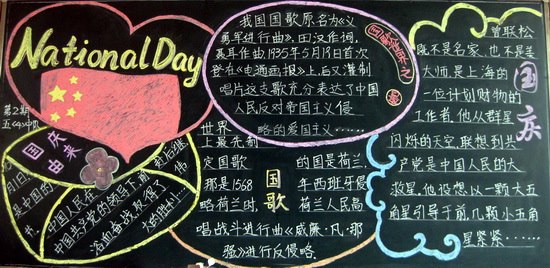 National Day
第2期
国庆
由来
中国人民在
中国共产党的领导下前赴后继
浴血奋战,取得了伟
大的胜利……
我国国歌原名为《义
勇军进行曲》,田汉作词,
聂耳作曲,1935年5月19日首次
登在《电通画报》上,后又灌制
唱片这支歌充分表达了中国
人民反对帝国主义侵
略的爱国主义……
世界
上最先制
定国歌的国是荷兰,
那是1568年西班牙侵
略荷兰时,荷兰人民高
唱战斗进行曲《威廉·凡·那
骚》进行反侵略.
国歌
曾联松
既不是名家,也不是美
大师,是上海的
一位计划财物的
工作者,他从群星
闪烁的天空,联想到共
产党是中国人民的大
救星,他设想以一颗大五
角星引导于前,几颗小五角
星紧紧……
国庆